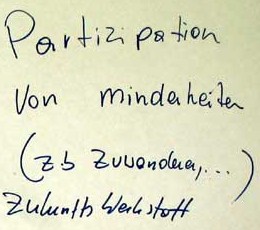 Partizipation
von minderheiten
(zb Zuwanderer,...)
Zukunftswerkstatt